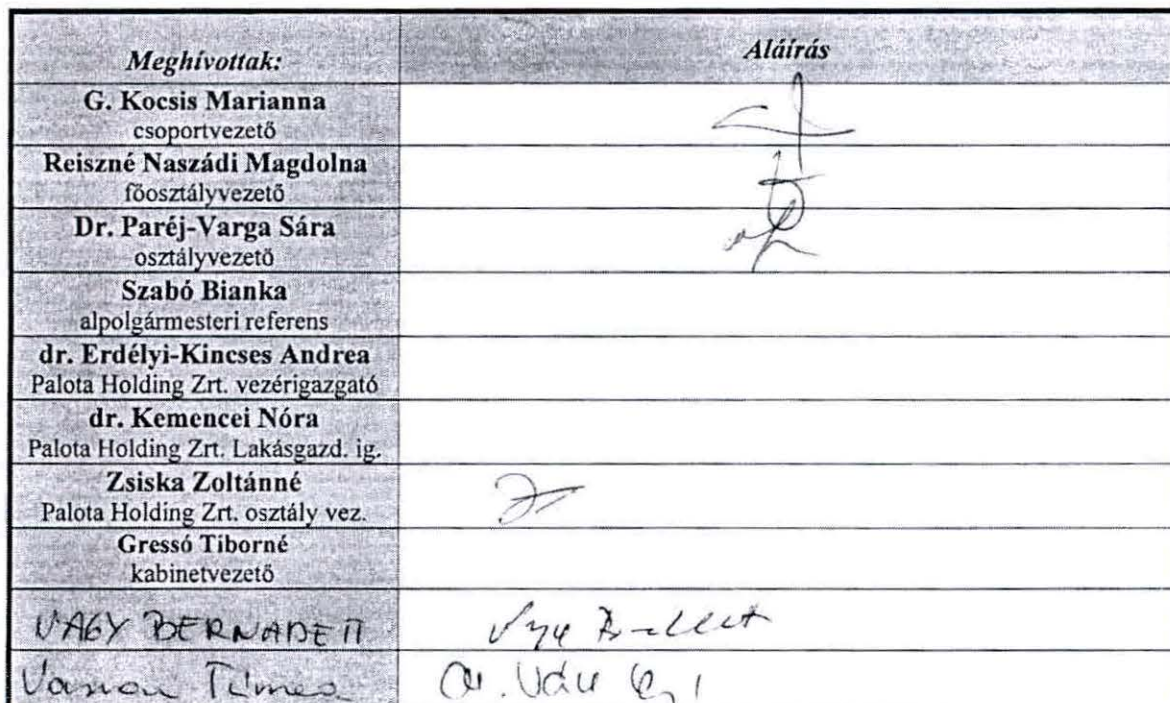 Meghívottak: Aláírás
G. Kocsis Marianna
csoportvezető
Reiszné Naszádi Magdolna
főosztályvezető
Dr. Paréj-Varga Sára
osztályvezető
Szabó Bianka
alpolgármesteri referens
dr. Erdélyi-Kincses Andrea
Palota Holding Zrt. vezérigazgató
dr. Kemencei Nóra
Palota Holding Zrt. Lakásgazd. ig.
Zsiska Zoltánné
Palota Holding Zrt. osztály vez.
Gressó Tiborné
kabinetvezető
BERNADETT
Tímea